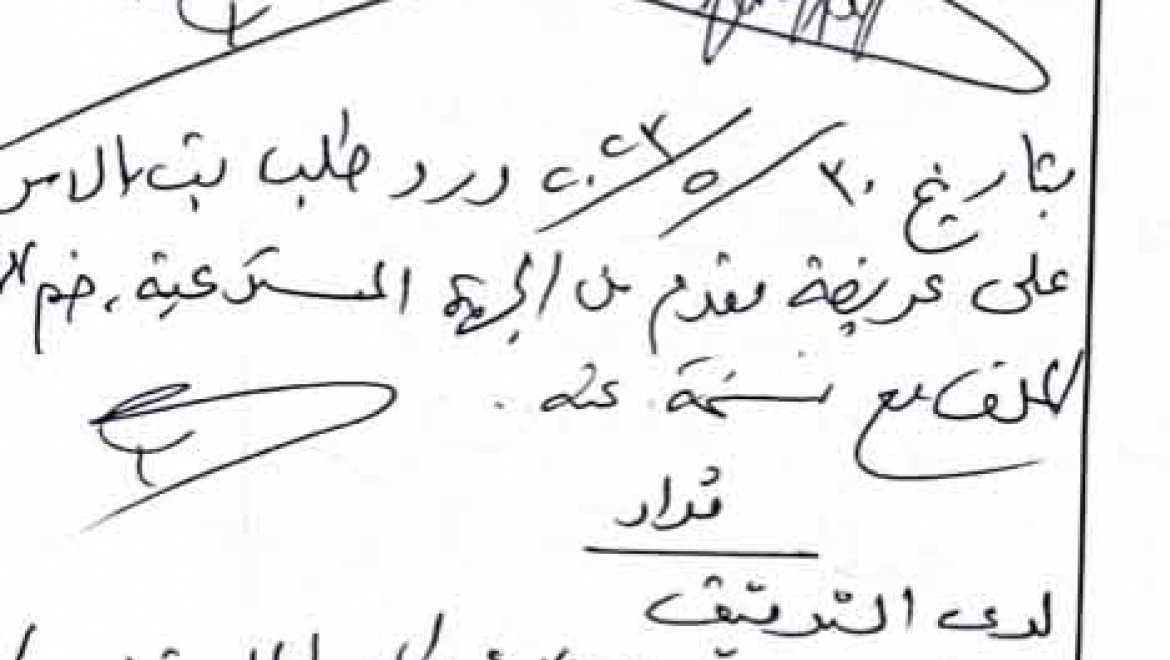 بتاريخ ٣٠/٥/٢٠٢٣ ورد طلب بت بالامر
على عريضة مقدم من الجهة المستدعية، ضم
الملف مع نسخة عنه.
قرار
لدى التدقيق